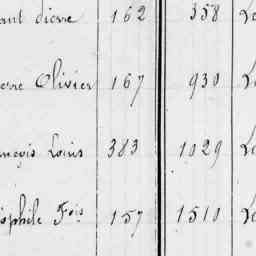 ant Pierre 162 358 Le
erre Olivier 167 930 Le
ançois Louis 383 1029 Le
éophile Fois 157 1510 Le